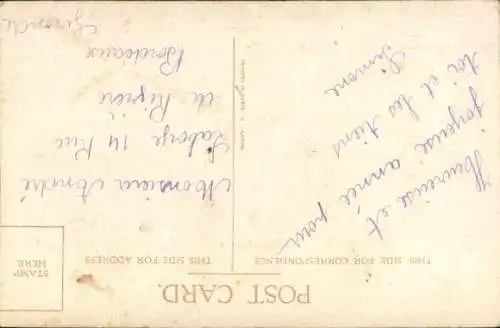 POST CARD.
THIS SIDE FOR CORRESPONDENCE
THIS SIDE FOR ADDRESS
STAMP
HERE.
Heureuse et
joyeuse année pour
toi et les tiens
Simone
Monsieur André
Laborge 14 Rue
de Rivière
Bordeaux
Gironde